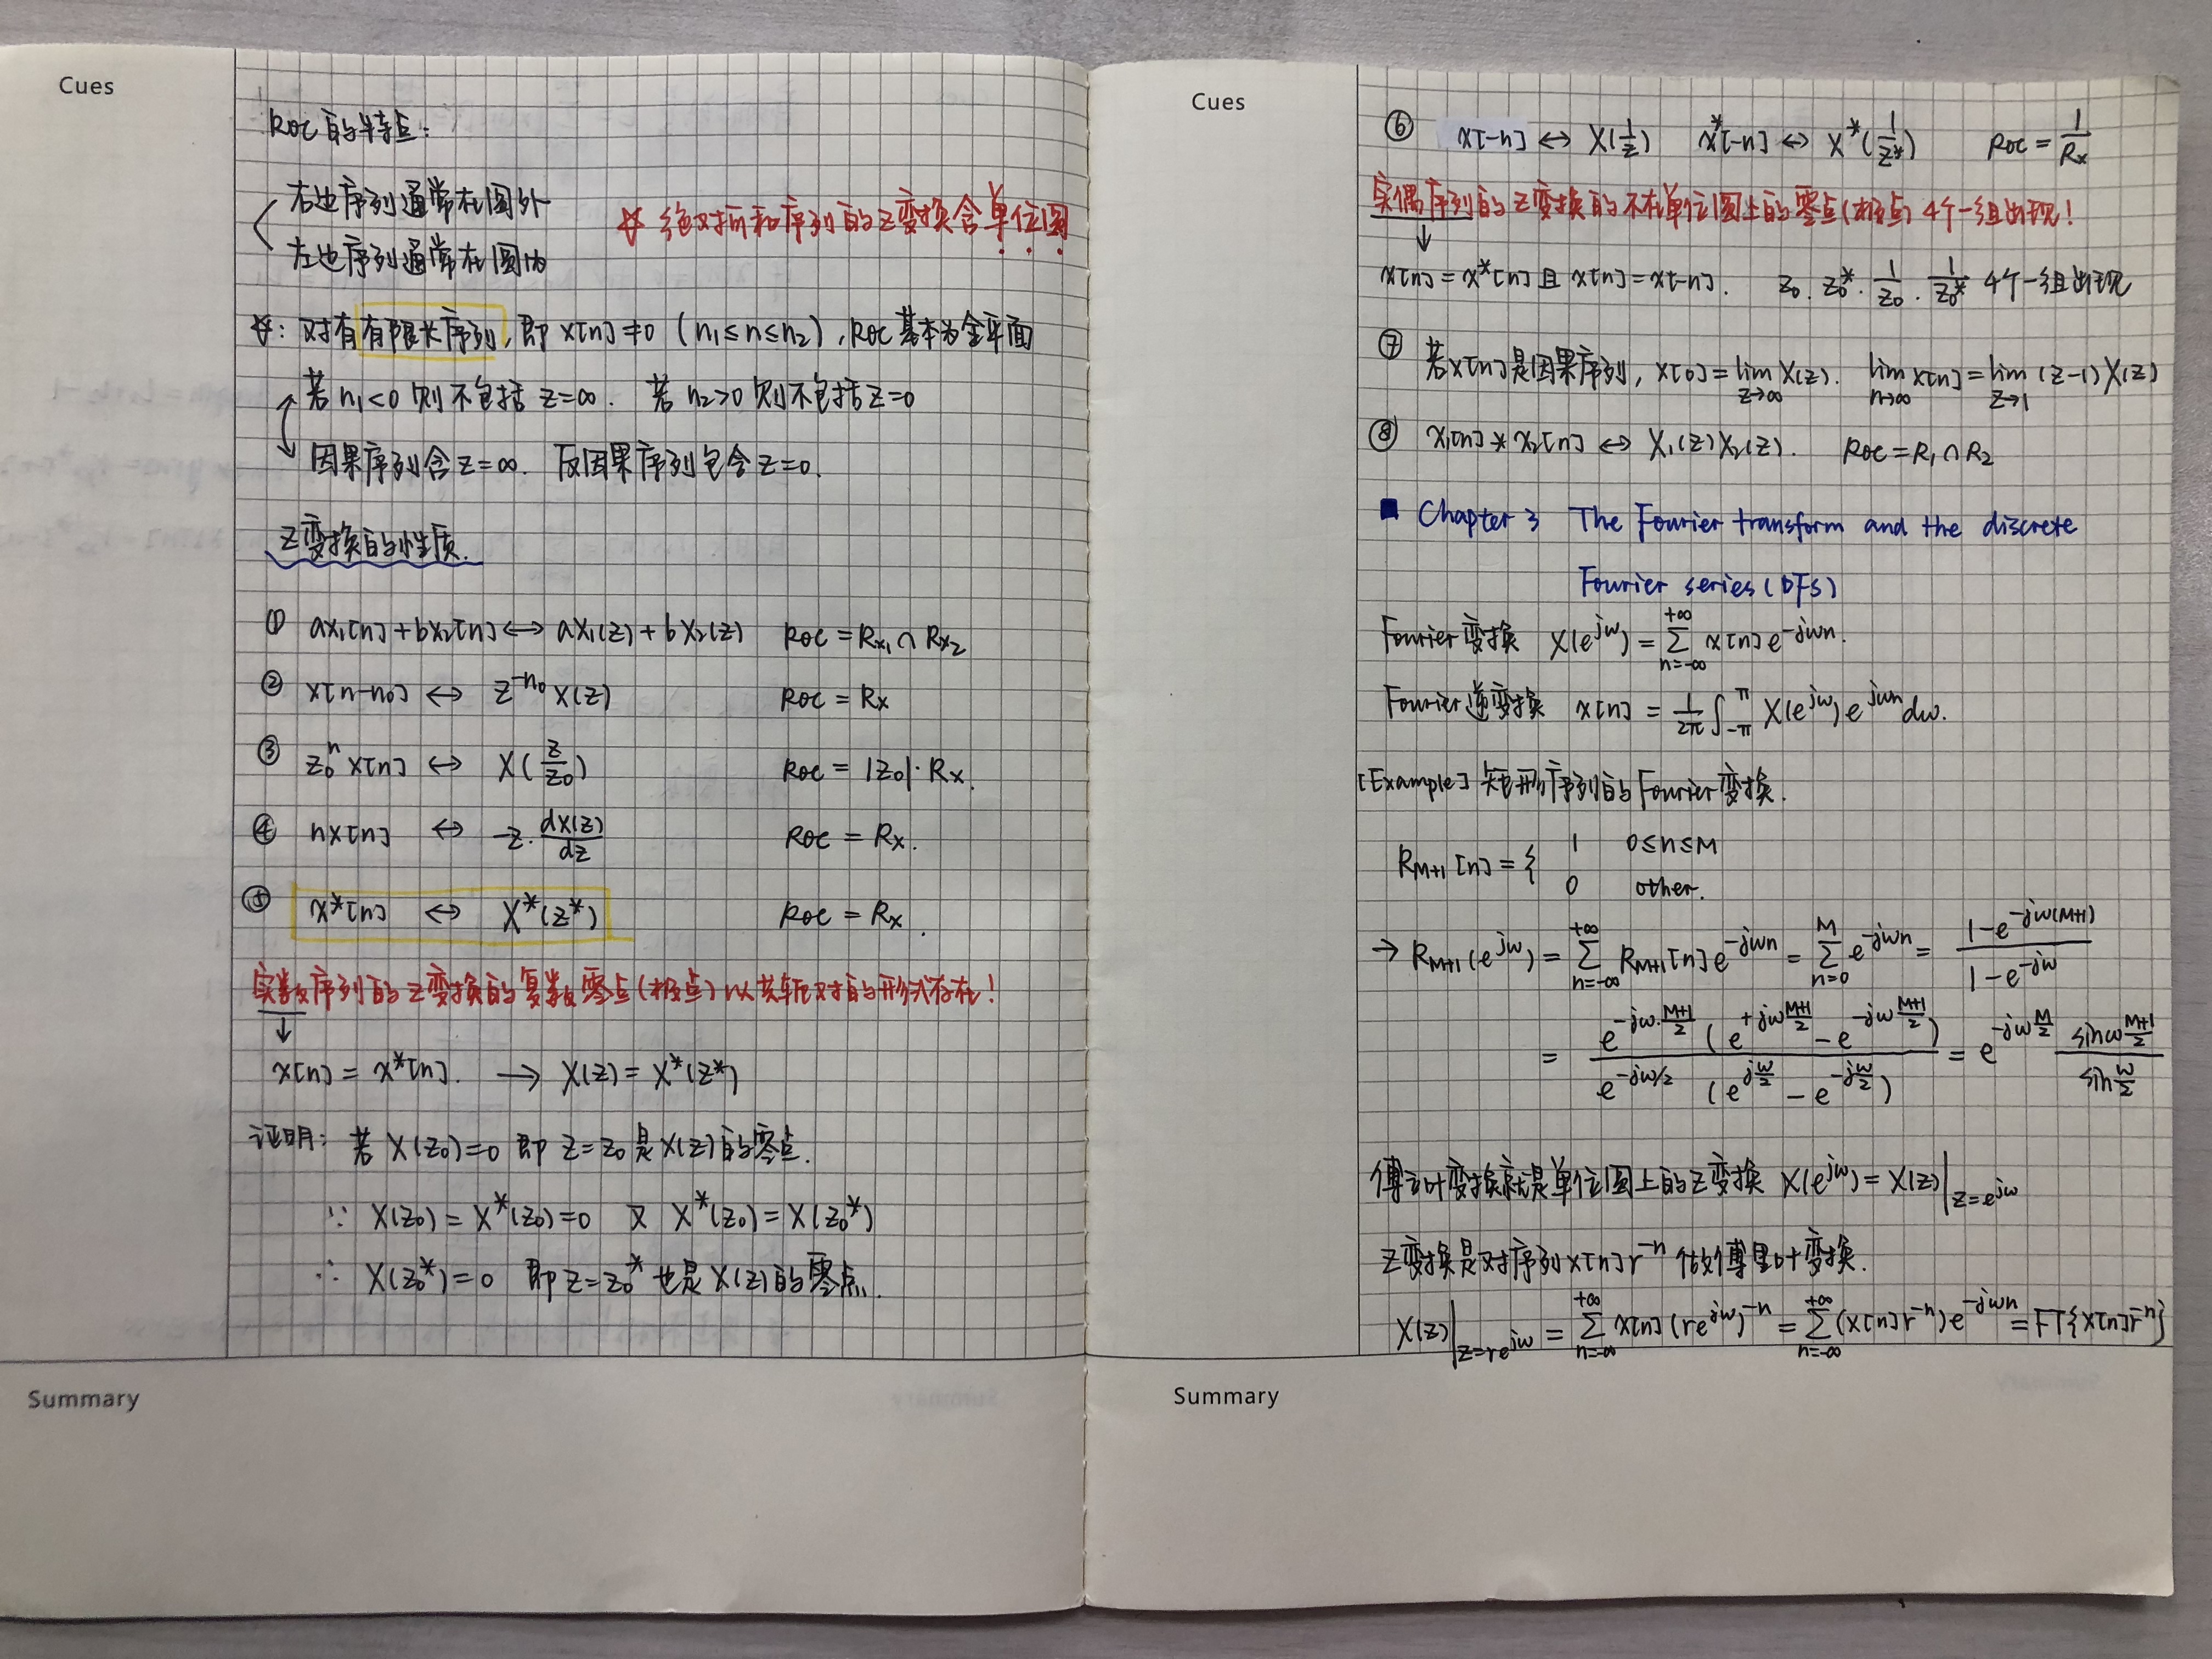 Cues
ROC的特点：
右边序列通常在圆外
☆ 绝对可和序列的Z变换含单位圆
左边序列通常在圆内
☆: 对有有限长序列, 即 x[n]≠0 (n₁≤n≤n₂), ROC基本为全平面
若 n₁<0 则不包括 z=∞. 若 n₂>0 则不包括 z=0
因果序列含 z=∞. 反因果序列包含 z=0.
Z变换的性质.
① ax₁[n]+bx₂[n] ↔ aX₁(z)+bX₂(z) ROC = Rx₁∩Rx₂
② x[n-n₀] ↔ z^{-n₀}X(z) ROC = Rx
③ z₀ⁿx[n] ↔ X(z/z₀) ROC = |z₀|·Rx.
④ nx[n] ↔ -z·dX(z)/dz ROC = Rx.
⑤ x*[n] ↔ X*(z*) ROC = Rx.
实数序列的Z变换的复数零点(极点)以共轭对的形式存在!
↓
x[n] = x*[n]. → X(z) = X*(z*)
证明: 若 X(z₀)=0 即 z=z₀ 是X(z)的零点.
∵ X(z₀) = X*(z₀)=0 又 X*(z₀) = X(z₀*)
∴ X(z₀*)=0 即 z=z₀* 也是 X(z)的零点.
Summary
Cues
⑥ x[-n] ↔ X(1/z) x*[-n] ↔ X*(1/z*) ROC = 1/Rx
实偶序列的Z变换的不在单位圆上的零点(极点) 4个一组出现!
↓
x[n] = x*[n] 且 x[n] = x[-n]. z₀. z₀*. 1/z₀. 1/z₀* 4个一组出现
⑦ 若x[n]是因果序列, x[0] = lim_{z→∞} X(z). lim_{n→∞} x[n] = lim_{z→1} (z-1)X(z)
⑧ x₁[n]*x₂[n] ↔ X₁(z)X₂(z). ROC = R₁∩R₂
■ Chapter 3 The Fourier transform and the discrete
Fourier series (DFS)
Fourier变换 X(e^{jω}) = Σ_{n=-∞}^{+∞} x[n]e^{-jωn}.
Fourier逆变换 x[n] = 1/2π ∫_{-π}^{π} X(e^{jω})e^{jωn}dω.
[Example] 矩形序列的Fourier变换.
R_{M+1}[n] = { 1 0≤n≤M
0 other.
→ R_{M+1}(e^{jω}) = Σ_{n=-∞}^{+∞} R_{M+1}[n]e^{-jωn} = Σ_{n=0}^{M} e^{-jωn} = (1-e^{-jω(M+1)})/(1-e^{-jω})
= e^{-jω·(M+1)/2}(e^{+jω(M+1)/2} - e^{-jω(M+1)/2}) / e^{-jω/2}(e^{jω/2} - e^{-jω/2}) = e^{-jωM/2} sinω(M+1)/2 / sin ω/2
傅立叶变换就是单位圆上的Z变换 X(e^{jω}) = X(z)|_{z=e^{jω}}
Z变换是对序列x[n]r^{-n} 做傅里叶变换.
X(z)|_{z=re^{jω}} = Σ_{n=-∞}^{+∞} x[n](re^{jω})^{-n} = Σ_{n=-∞}^{+∞} (x[n]r^{-n})e^{-jωn} = FT{x[n]r^{-n}}
Summary